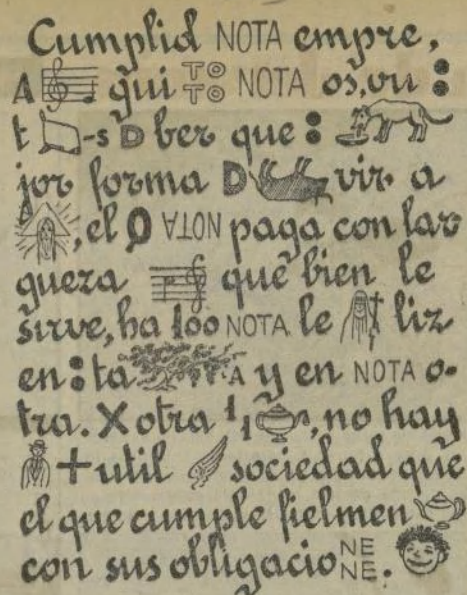 Cumplid NOTA empre,
A qui TO TO NOTA os, vu :
t -s D ber que :
jor forma D vir a
, el O NOTA paga con lar
gueza que bien le
sirve, ha 100 NOTA le liz
en : ta A y en NOTA o-
tra. X otra 1 1 , no hay
+ util sociedad que
el que cumple fielmen
con sus obligacio NE NE.